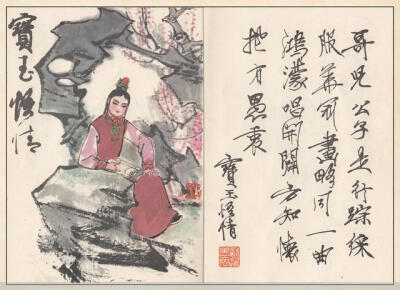 寶玉悟情
哥兒公子是行踪綵
服華冠畫略同一曲
鴻濛唱開闢方知懷
抱有愚衷
寶玉悟情